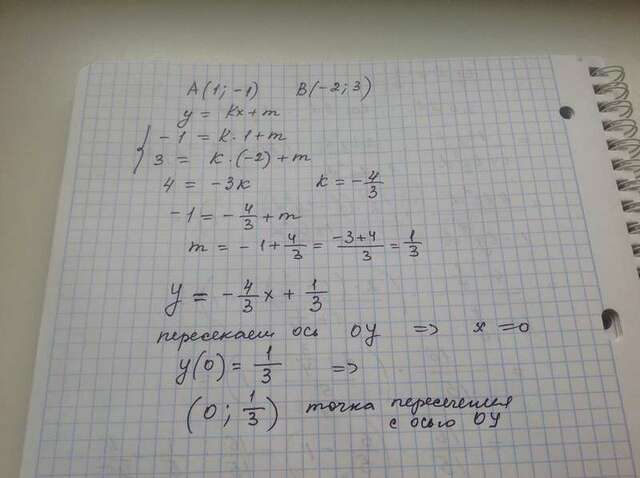 A(1; -1) B(-2; 3)
y = kx + m
{ -1 = k · 1 + m
3 = k · (-2) + m
4 = -3k k = -4/3
-1 = -4/3 + m
m = -1 + 4/3 = (-3+4)/3 = 1/3
y = -4/3 x + 1/3
пересекаем ось OY => x = 0
y(0) = 1/3 =>
(0; 1/3) точка пересечения
с осью OY